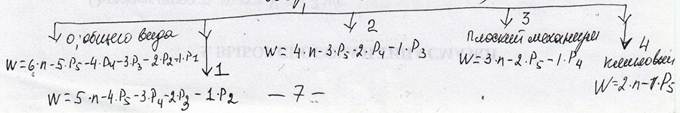 0; общего вида
W = 6·n-5·P₅-4·P₄-3·P₃-2·P₂-1·P₁
1
W = 5·n-4·P₅-3·P₄-2·P₃-1·P₂
2
W = 4·n-3·P₅-2·P₄-1·P₃
3
Плоский механизм
W = 3·n-2·P₅-1·P₄
4
клиновый
W = 2·n-1·P₅
- 7 -